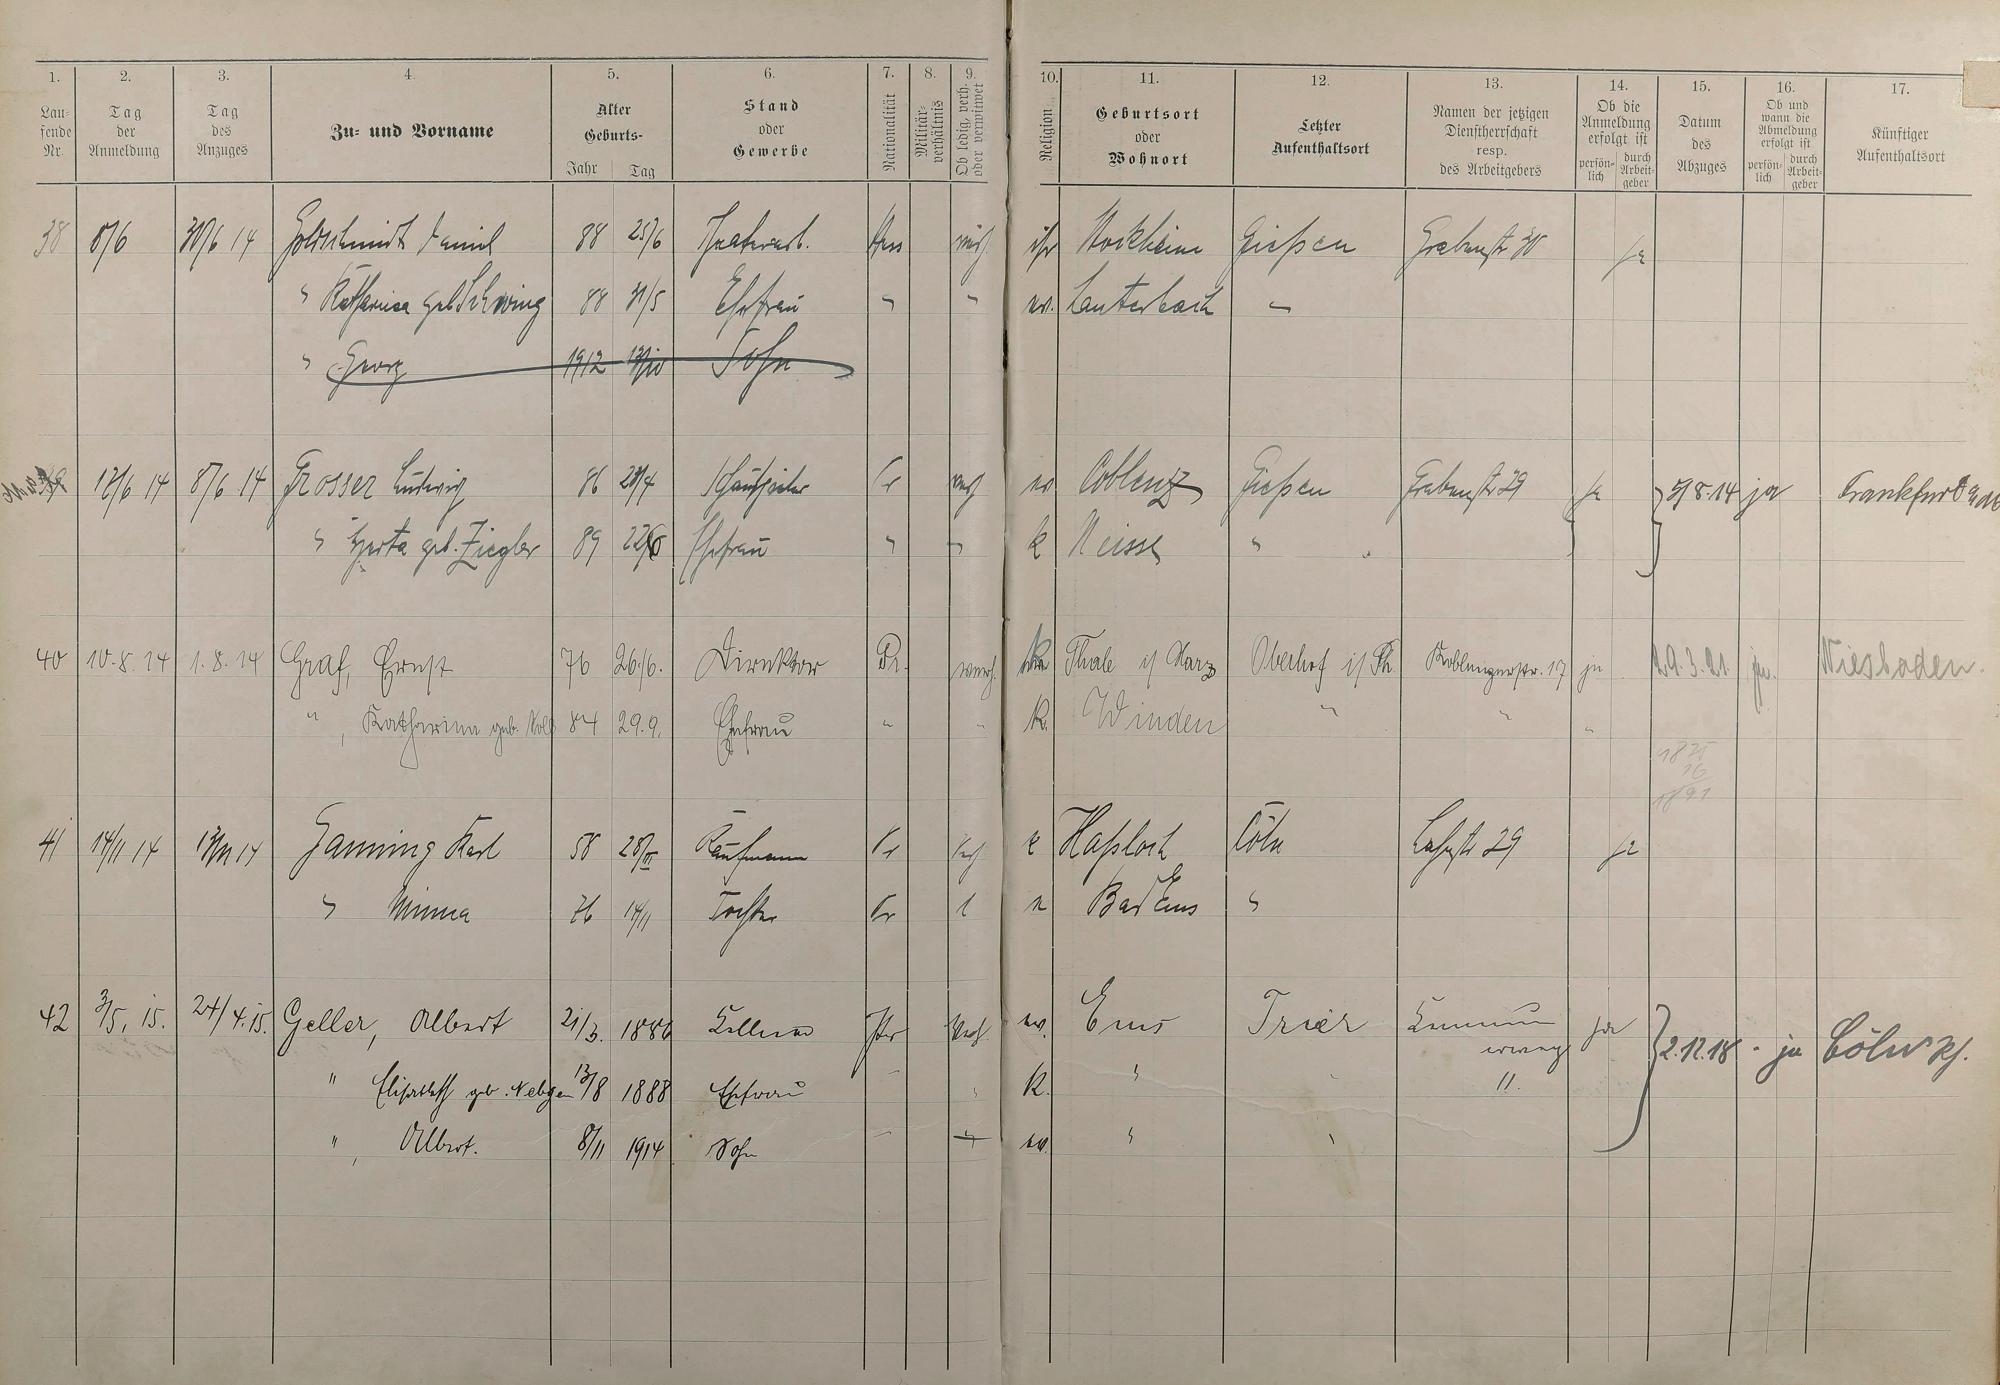 1. 2. 3. 4. 5. 6. 7. 8. 9. 10. 11. 12. 13. 14. 15. 16. 17.
Lau-
fende
Nr.
Tag
der
Anmeldung
Tag
des
Anzuges
Zu- und Vorname
Alter
Geburts-
Jahr Tag
Stand
oder
Gewerbe
Nationalität
Militär-
verhältnis
Ob ledig, verh.
oder verwitwet
Religion
Geburtsort
oder
Wohnort
Letzter
Aufenthaltsort
Namen der jetzigen
Dienstherrschaft
resp.
des Arbeitgebers
Ob die
Anmeldung
erfolgt ist
persön-
lich
durch
Arbeit-
geber
Datum
des
Abzuges
Ob und
wann die
Abmeldung
erfolgt ist
persön-
lich
durch
Arbeit-
geber
Künftiger
Aufenthaltsort
38 30/6 14 Goldschmidt Daniel 88 25/6 Hess isr Stockheim Giessen Grabenstr 30 ja
" Katharina geb. 88 31/5 Ehefrau " " ev. Lauterbach
" Georg 1912 Sohn
39 12/6 14 8/6 14 Grosser Ludwig 86 Schauspieler Pr ev Coblenz Giessen Grabenstr 29 ja 5/8.14 ja Frankfurt
" Herta geb. Ziegler 89 Ehefrau " " k Neisse "
40 10.8.14 1.8.14 Graf, Ernst 76 26.6. Direktor Pr. verh. Thale i/Harz Oberhof i/Th. Koblenzerstr. 17 ja 29.3.21. ja. Wiesbaden.
" Katharina geb. 84 29.9. Ehefrau " " k. Winden " " "
1875
16
1891
41 14/11 14 Ganning Karl 58 28/III Kaufmann Pr k Hassloch Cöln Lahnstr 29 ja
" Minna 76 14/11 Tochter Pr l Bad Ems "
42 3/5. 15. 24/4.15. Geller, Albert 21/3. 1886 Kellner ev. Ems Trier ja 2.12.18 ja Cöln
" Elisabeth geb. Nebgen 13/8 1888 Ehefrau k. " 11.
" Albert. 8/11 1914 Sohn ev. "